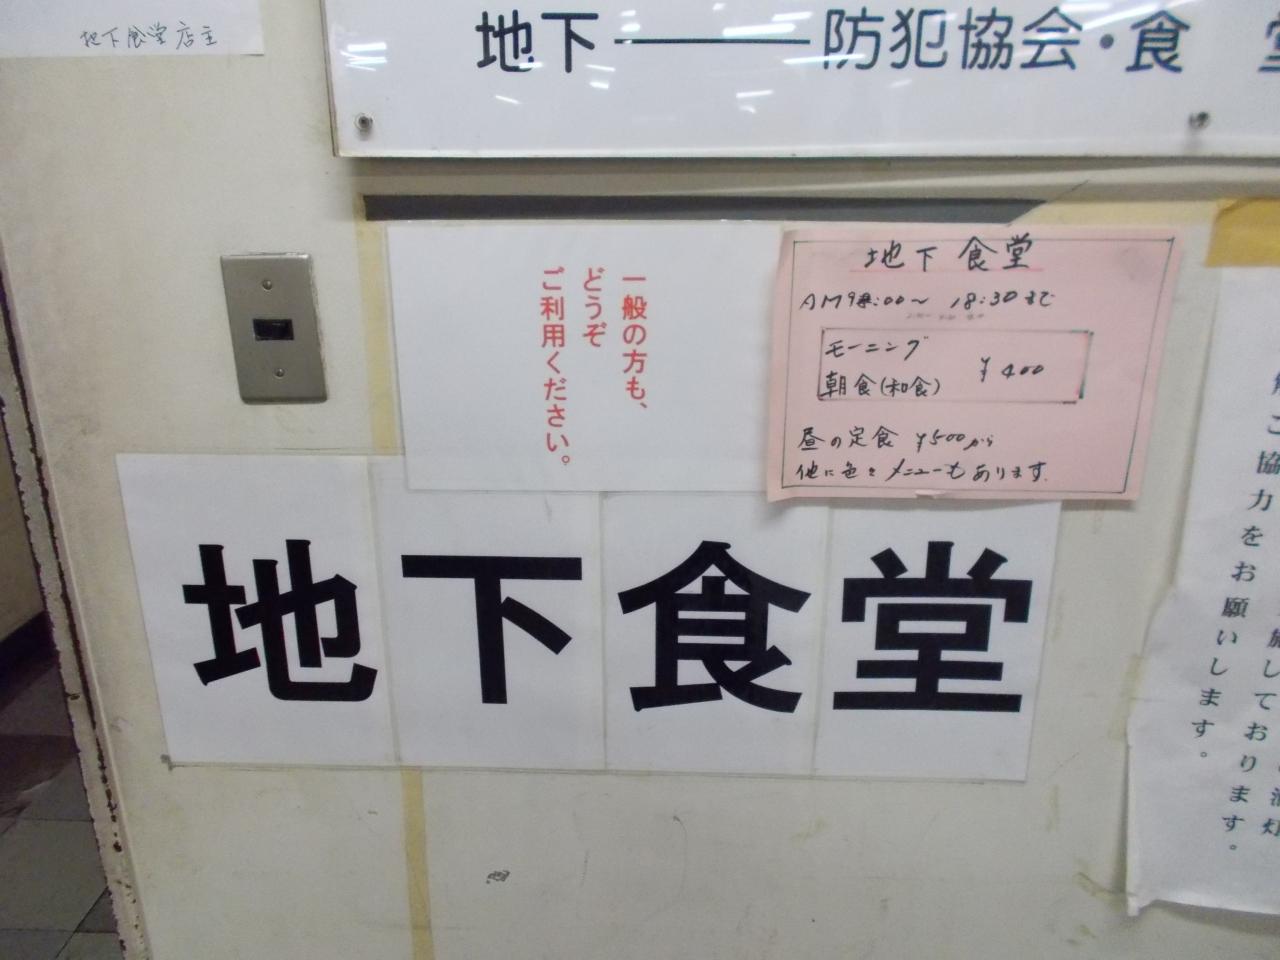 地下食堂店主
地下――防犯協会・食堂
一般の方も、
どうぞ
ご利用ください。
地下食堂
AM9:00〜 18:30まで
モーニング
朝食(和食) ¥400
昼の定食 ¥500から
他に色々メニューもあります.
地下食堂
施しております。
ご協力をお願いします。